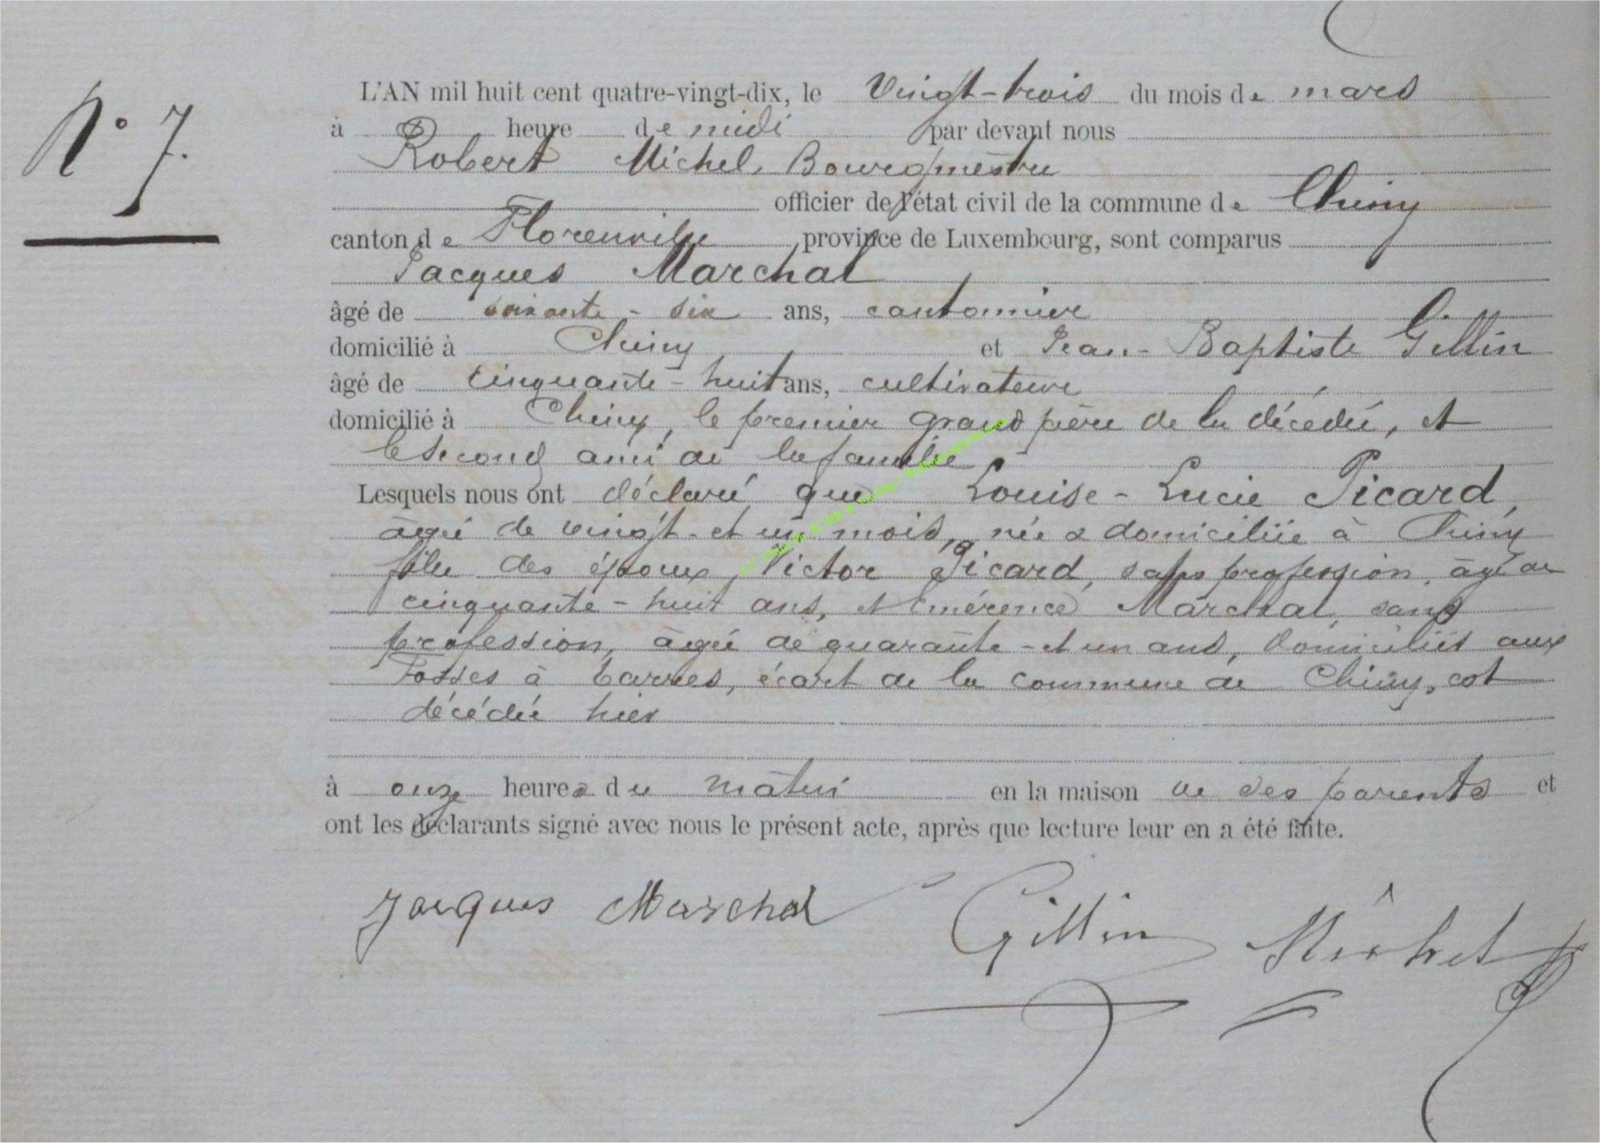 N° 7.
L'AN mil huit cent quatre-vingt-dix, le vingt-trois du mois de mars
à heure de midi par devant nous
Robert Michel, Bourgmestre
officier de l'état civil de la commune de Chiny
canton de Florenville province de Luxembourg, sont comparus
Jacques Marchal
âgé de soixante-six ans, cantonnier
domicilié à Chiny et Jean-Baptiste Gillin
âgé de cinquante-huit ans, cultivateur
domicilié à Chiny, le premier grand père de la décédée, et
le second ami de la famille
Lesquels nous ont déclaré que Louise-Lucie Picard,
âgée de vingt-et un mois, née & domiciliée à Chiny
fille des époux Victor Picard, sans profession, âgé de
cinquante-huit ans, et Émérence Marchal, sans
profession, âgée de quarante-et un ans, domiciliés aux
Fosses à barres, écart de la commune de Chiny, est
décédée hier
à onze heures du matin en la maison de ses parents et
ont les déclarants signé avec nous le présent acte, après que lecture leur en a été faite.
Jacques Marchal Gillin Michel